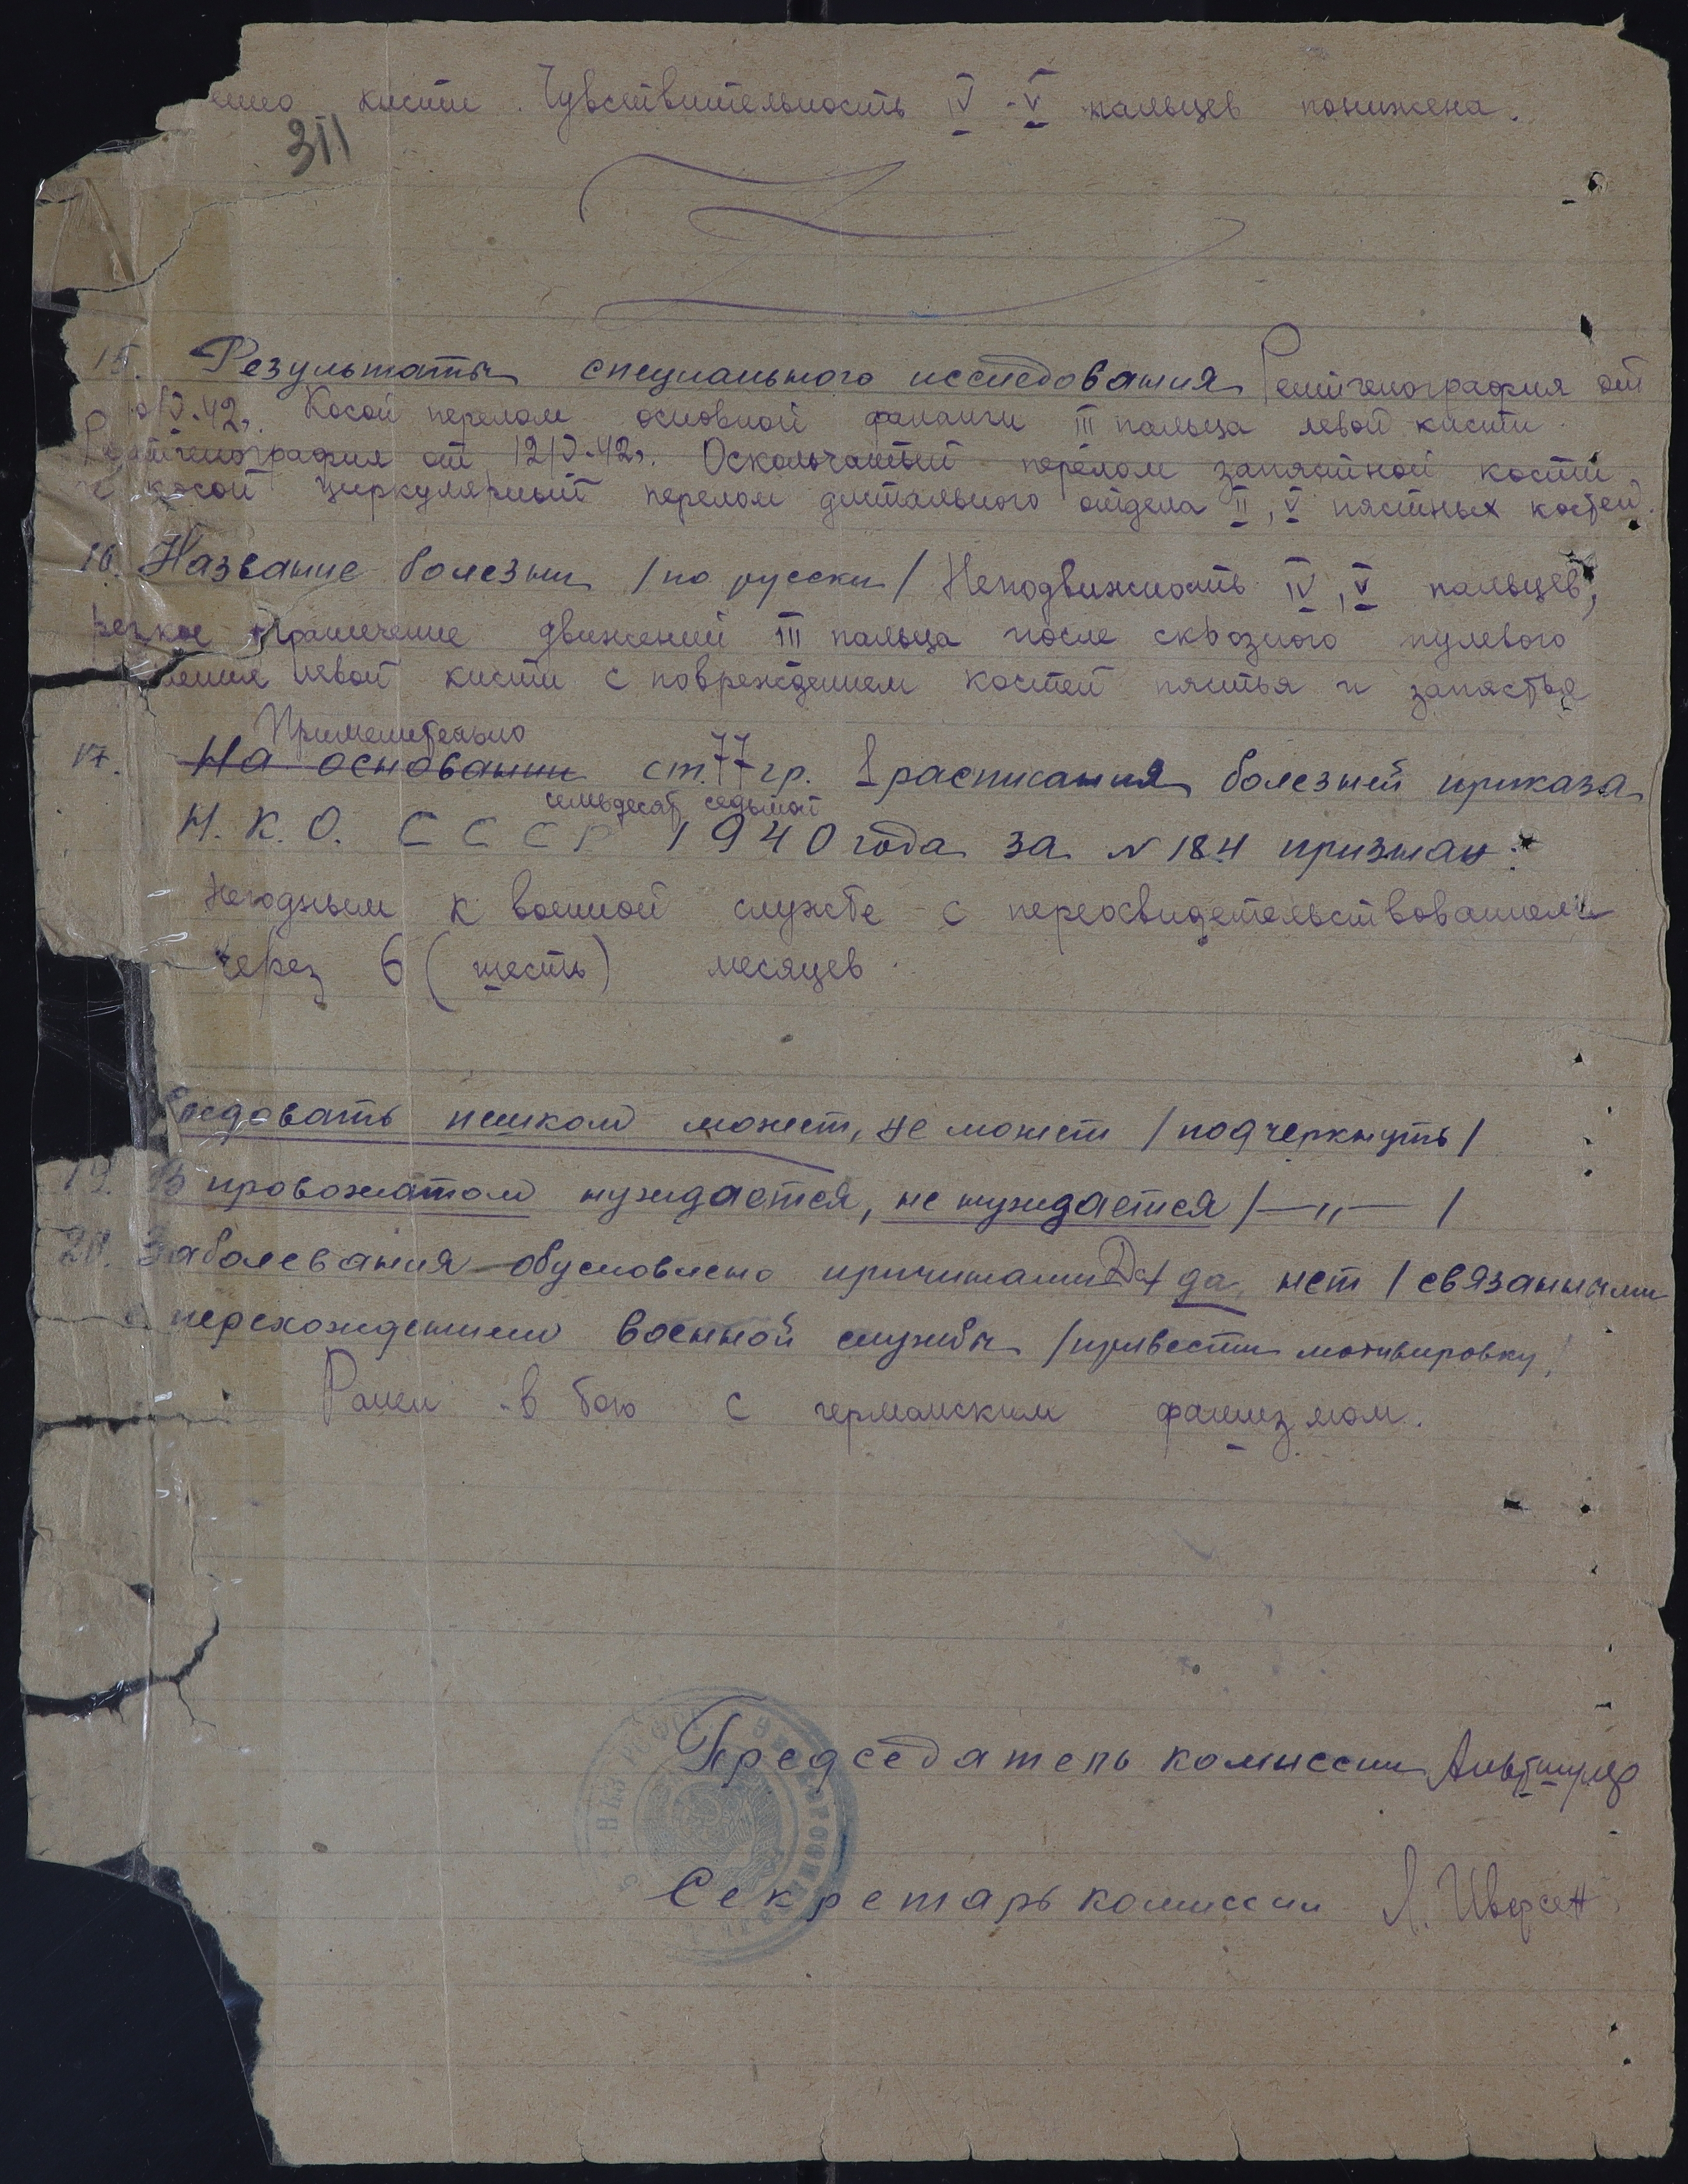 кисти. Чувствительность IV-V пальцев понижена.
311
15. Результаты специального исследования Рентгенография от
V-42г. Косой перелом основной фаланги III пальца левой кисти.
Рентгенография от 12/V-42г. Оскольчатый перелом запястной кости
и косой циркулярный перелом дистального отдела II, V пястных костей.
16. Название болезни /по русски/ Неподвижность IV, V пальцев,
резкое ограничение движений III пальца после сквозного пулевого
левой кисти с повреждением костей пястья и запястья
Применительно
17. На основании ст. 77 гр. 1 расписания болезней приказа
семьдесят седьмой
Н.К.О. СССР 1940 года за № 184 признан:
Негодным к военной службе с переосвидетельствованием
через 6 (шесть) месяцев
Следовать пешком может, не может /подчеркнуть/
19. В провожатом нуждается, не нуждается /—„—/
20. Заболевания обусловлено причинами Да / да, нет / связанными
перехождением военной службы /привести мотивировку/
Ранен в бою с германским фашизмом.
Председатель комиссии Альтшулер
Секретарь комиссии Л. Иверсен